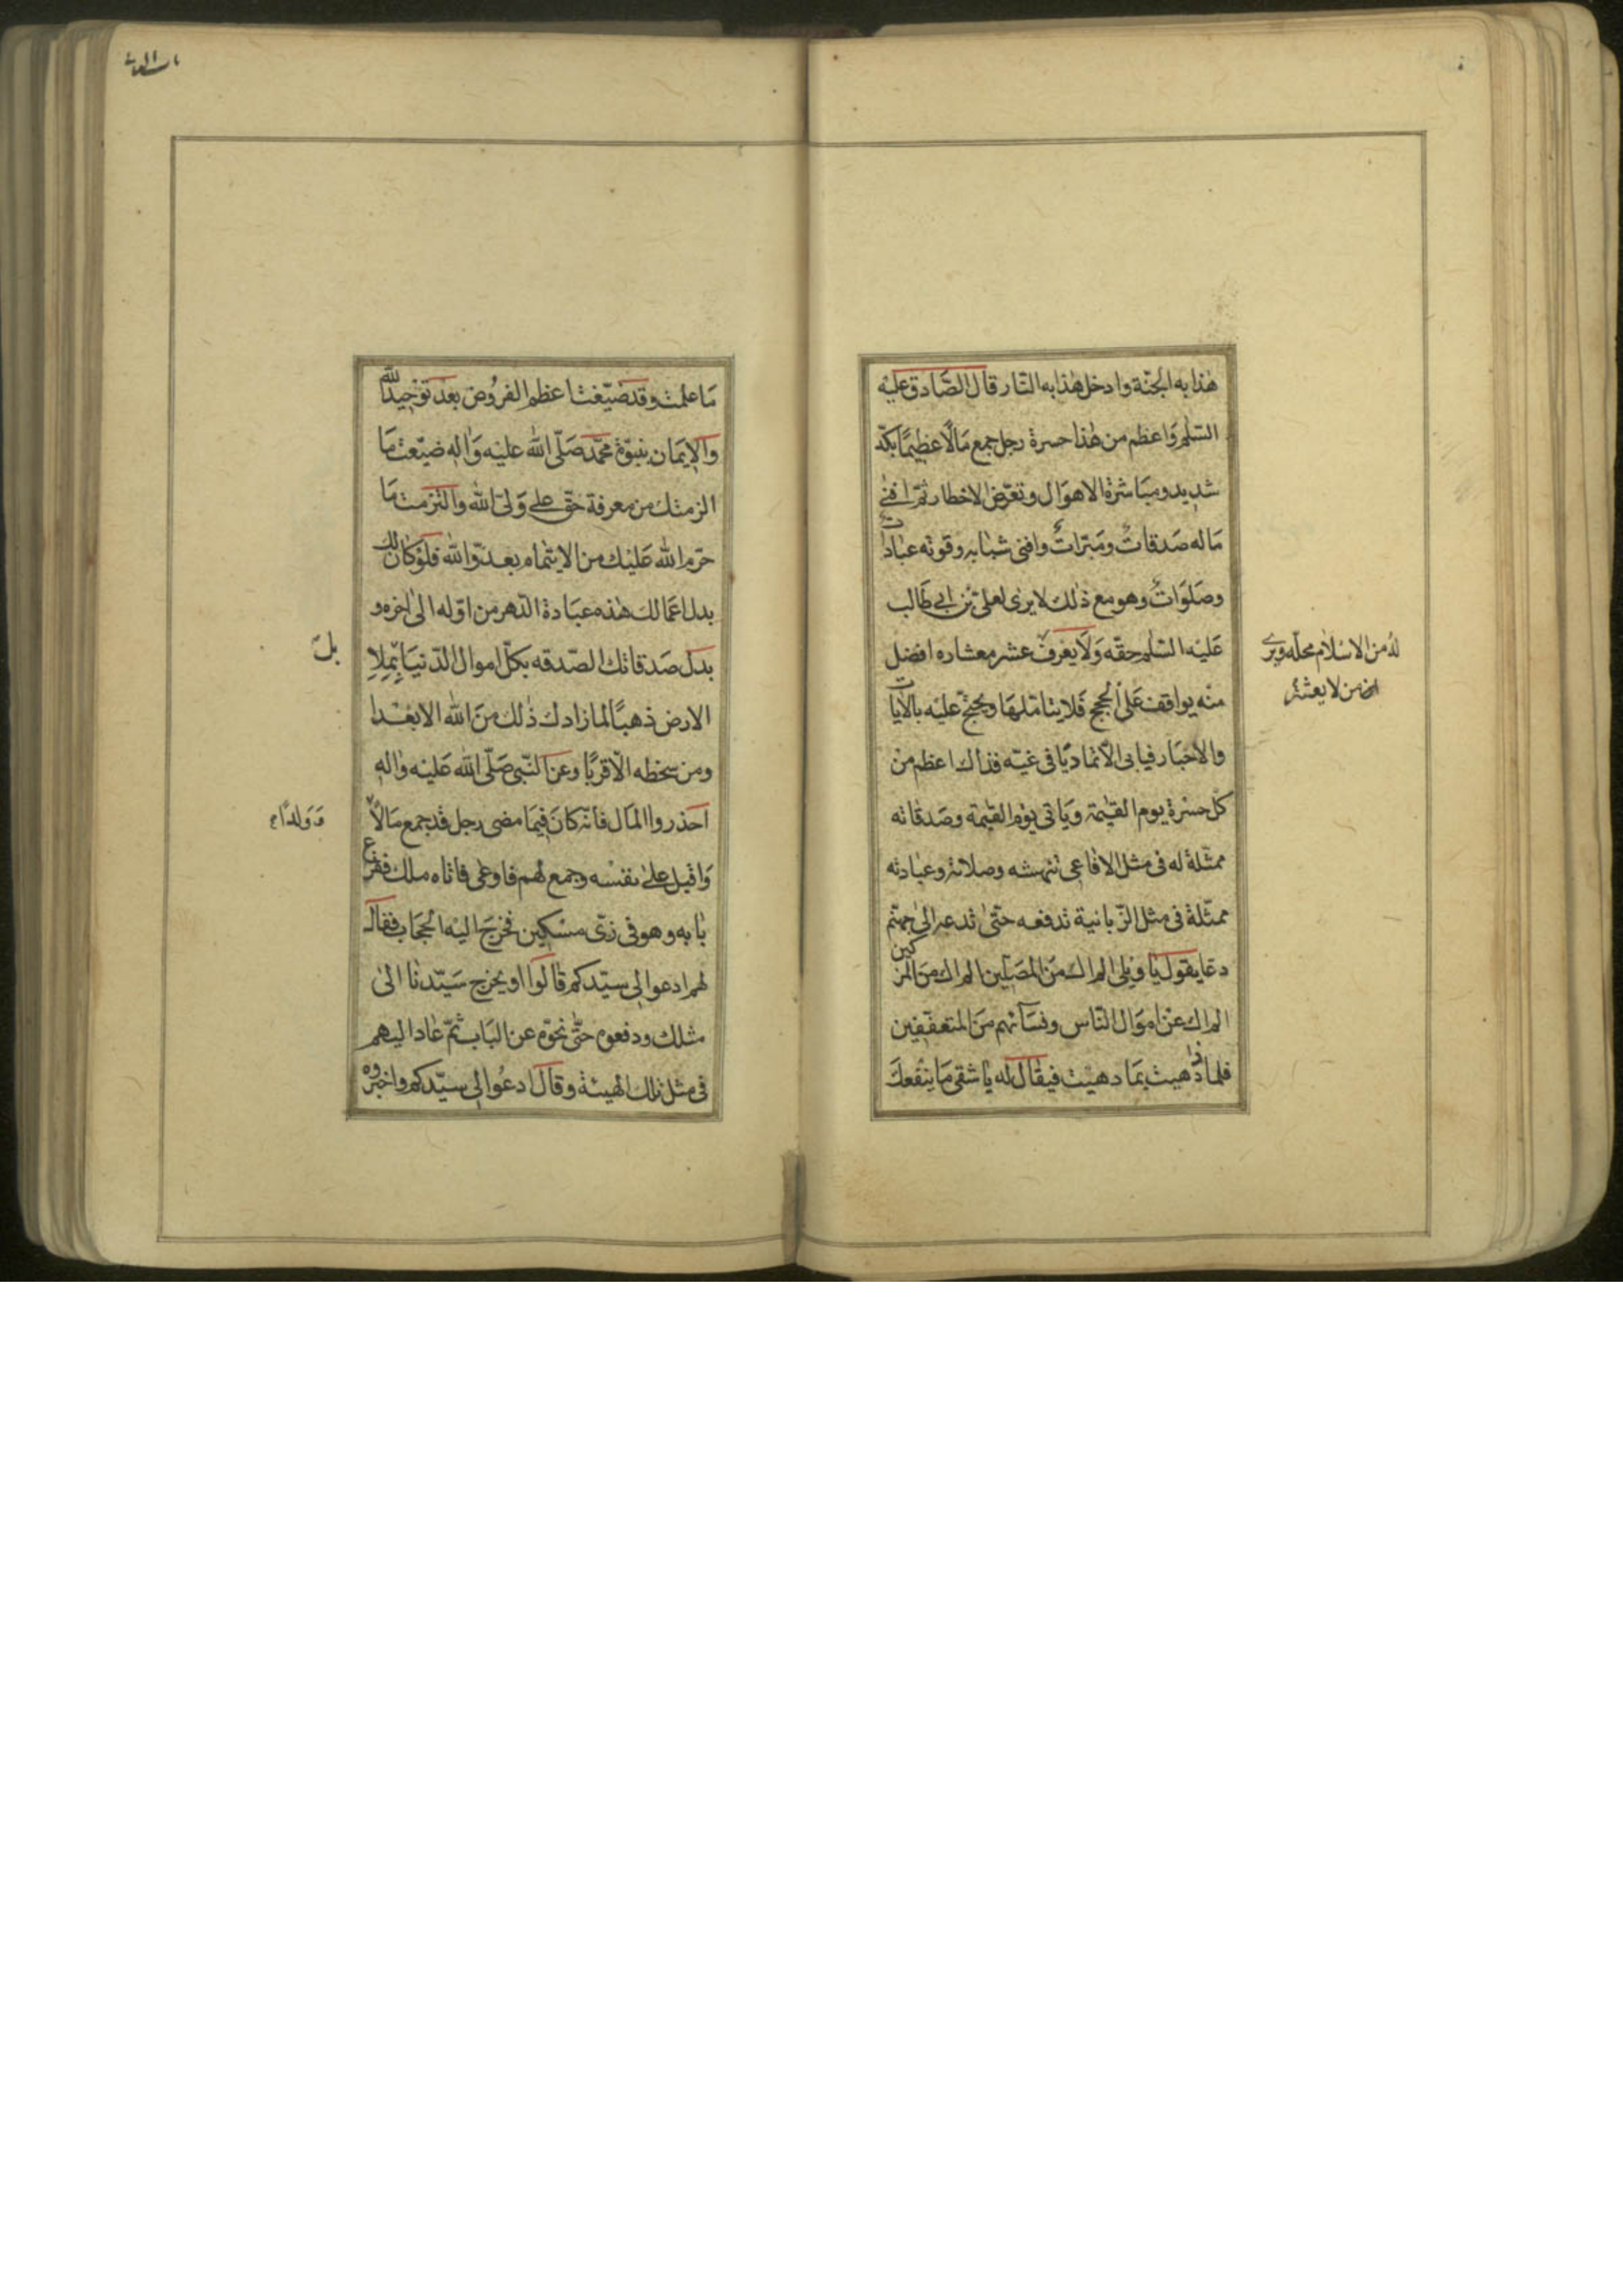 هذا به الجنّة وادخل هذا به النّار قال الصّادق عليْه
السّلم وَاعظم من هذا حسرة رجل جمع مَالًا عظيمًا بكدّ
شديد ومبَاشرة الاهوَال وتعرّض الاخطار ثمّ افنى
مَاله صَدقاتٌ ومَبرّاتٌ وافنى شبابه وقوته عبادات
وصَلوَاتٌ وهو مع ذلك لا يرى لعلىّ بْن ابى طَالب
عَليْه السّلم حقّه وَلَا يعْرف عشر معشاره افضل
منْه يواقف عَلَى الحجج فَلا يتامّلهَا ويحتجّ عليْه بالايات
والاخبَار فيابى الّا تماديًا فى غيّه فذاك اعظم منْ
كل حسْرة يوم القيٰمة وَيَاتى يوْم القيٰمة وصَدقاته
ممثّلة له فى مثل الافاعى تنهشه وصلاته وعبادته
ممثّلة فى مثل الزّبانية تدفعه حتّىٰ تدعه الىٰ جهنّم
دعّا يقول يَا ويْلى الم اك منَ المصَلّين الم اك منَ المزكين
الم اك عنْ اموَال النّاس ونسَآئهم منَ المتعفّفين
فلماذا دهيت بمَا دهيْت فيقَال له يَا شقى مَا ينْفعكَ
لهُ من الاسْلام محلّه ويرى
انّ من لا يعشرُ
مَا عملت وقد ضيّعْت اعظم الفرُوض بعْد توْحيْد الله
والايمَان بنبوّة محمّد صَلّى الله عليْه وَاله ضيّعْت مَا
الزمتك من معرفة حقّ على وَلىّ الله والتزمت مَا
حرّم الله عَليْك من الايتمام بعدوّ الله فلوْ كان لك
بدل اعمَالك هذه عبَادة الدّهر من اوّله الىٰ اخره و
بدَل صَدقاتك الصّدقه بكلّ اموال الدّنيَا بمِلاِ
الارض ذهبًا لمَا زادك ذٰلك منَ الله الا بعْدا
ومن سخطه الّا قربًا وعن النّبى صَلّى الله عَليْه واٰله
احذروا المَال فانّه كانَ فيمَا مضى رجل قد جمع مَالًا
وَاقبل علىٰ نفسْه وجمع لهم فاوعى فاتاه ملك فقرع
بَابه وهو فى زىّ مسْكين فخرجَ اليْه الحجاب فقال
لهم ادعوا الى سيّدكم قالوا اويخرج سَيّدنا الىٰ
مثلك ودفعوه حتّىٰ نحّوْه عن البَاب ثمّ عَاد اليهم
فى مثل تلك الهيْئة وقال ادعُوا الى سيّدكم واخبروه
بل
وَوَلدًا